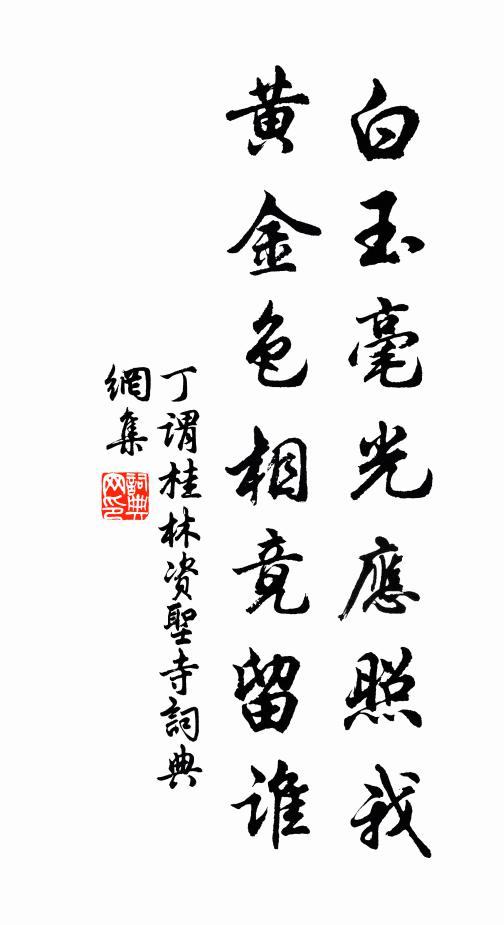 白玉毫光應照我
黃金色相竟留谁
丁謂桂林资聖寺詞典
網集
詞典
网印